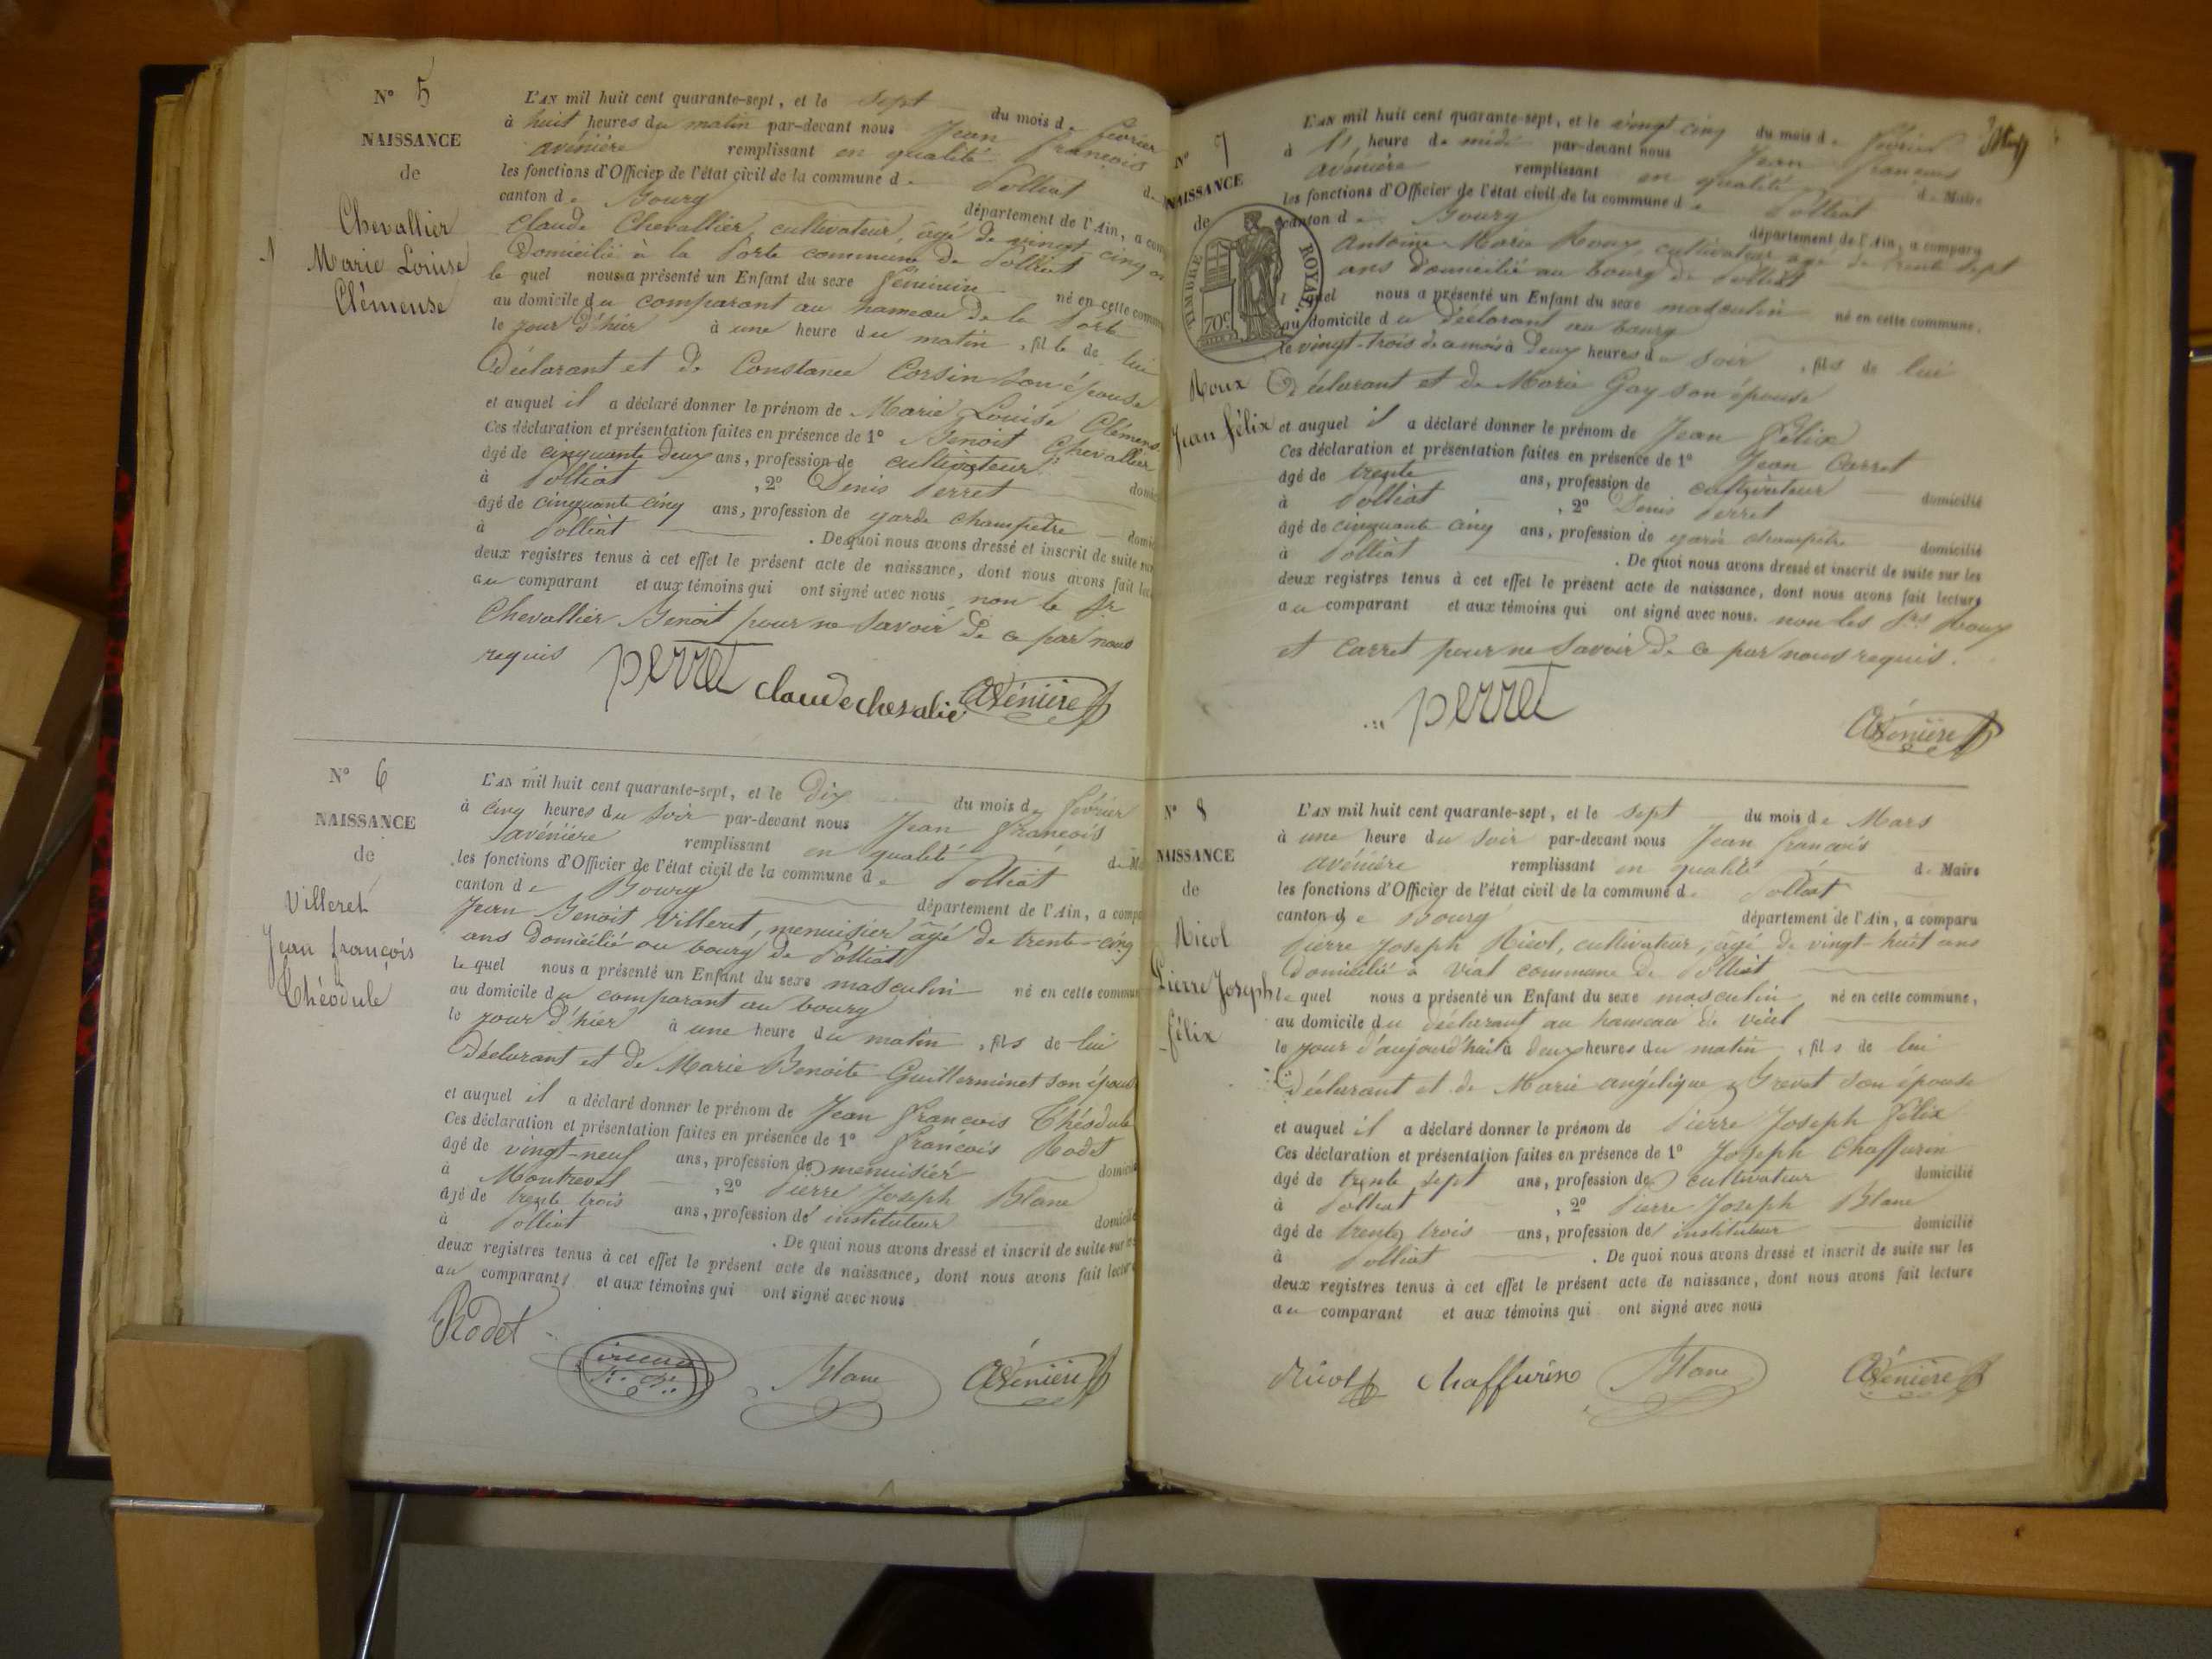 N° 5
NAISSANCE
de
Chevallier
Marie Louise
Clémense
L'AN mil huit cent quarante-sept, et le sept du mois de février
à huit heures du matin par-devant nous Jean françois
avénière remplissant en qualité d
les fonctions d'Officier de l'état civil de la commune de Polliat
canton de Bourg département de l'Ain, a com
Claude Chevallier, cultivateur, âgé de vingt cinq an
domicilié à la Porte commune de Polliat
le quel nous a présenté un Enfant du sexe féminin né en cette comm
au domicile du comparant au hameau de la Porte
le jour d'hier à une heure du matin, fille de lui
Déclarant et de Constance Corsin son épouse
et auquel il a déclaré donner le prénom de Marie Louise Clémens
Ces déclaration et présentation faites en présence de 1° Benoit Chevallier
âgé de cinquante deux ans, profession de cultivateur domic
à Polliat, 2° Denis Perret
âgé de cinquante cinq ans, profession de garde champetre domic
à Polliat. De quoi nous avons dressé et inscrit de suite sur
deux registres tenus à cet effet le présent acte de naissance, dont nous avons fait lec
au comparant et aux témoins qui ont signé avec nous non le Sr
Chevallier Benoit pour ne savoir de ce par nous
requis
perret claude chevalié Avénière
N° 6
NAISSANCE
de
Villeret
Jean françois
Théodule
L'AN mil huit cent quarante-sept, et le Dix du mois de février
à cinq heures du soir par-devant nous Jean françois
avénière remplissant en qualité de M
les fonctions d'Officier de l'état civil de la commune de Polliat
canton de Bourg département de l'Ain, a compa
Jean Benoit Villeret, menuisier âgé de trente-cinq
ans domicilié au bourg de Polliat
le quel nous a présenté un Enfant du sexe masculin né en cette commun
au domicile du comparant au bourg
le jour d'hier à une heure du matin, fils de lui
Déclarant et de Marie Benoite Guillerminet son épouse
et auquel il a déclaré donner le prénom de Jean françois Théodule
Ces déclaration et présentation faites en présence de 1° françois Rodet
âgé de vingt-neuf ans, profession de menuisier domicilié
à Montrevel, 2° Pierre Joseph Blanc
âgé de trente trois ans, profession de instituteur domicilié
à Polliat. De quoi nous avons dressé et inscrit de suite sur les
deux registres tenus à cet effet le présent acte de naissance, dont nous avons fait lecture
au comparant et aux témoins qui ont signé avec nous
Rodet Blanc Avénière
N° 7
NAISSANCE
de
TIMBRE ROYAL
70c
Roux
Jean félix
L'AN mil huit cent quarante-sept, et le vingt cinq du mois de février
à heure de midi par-devant nous Jean françois
avénière remplissant en qualité de Maire
les fonctions d'Officier de l'état civil de la commune de Polliat
canton de Bourg département de l'Ain, a comparu
Antoine Marie Roux, cultivateur âgé de trente sept
ans domicilié au bourg de Polliat
l quel nous a présenté un Enfant du sexe masculin né en cette commune,
au domicile du déclarant au bourg
le vingt-trois de ce mois à deux heures du soir, fils de lui
Déclarant et de Marie Gay son épouse
et auquel il a déclaré donner le prénom de Jean félix
Ces déclaration et présentation faites en présence de 1° Jean Carret
âgé de trente ans, profession de cultivateur domicilié
à Polliat, 2° Denis Perret
âgé de cinquante cinq ans, profession de garde champetre domicilié
à Polliat. De quoi nous avons dressé et inscrit de suite sur les
deux registres tenus à cet effet le présent acte de naissance, dont nous avons fait lecture
au comparant et aux témoins qui ont signé avec nous. non les Srs Roux
et Carret pour ne savoir de ce par nous requis.
perret Avénière
N° 8
NAISSANCE
de
Nicol
Pierre Joseph
félix
L'AN mil huit cent quarante-sept, et le sept du mois de Mars
à une heure du soir par-devant nous Jean françois
avénière remplissant en qualité de Maire
les fonctions d'Officier de l'état civil de la commune de Polliat
canton de Bourg département de l'Ain, a comparu
Pierre Joseph Nicol, cultivateur, âgé de vingt-huit ans
domicilié à Vial commune de Polliat
le quel nous a présenté un Enfant du sexe masculin né en cette commune,
au domicile du déclarant au hameau de Vial
le jour d'aujourd'hui à deux heures du matin, fils de lui
Déclarant et de Marie angélique Grevat son épouse
et auquel il a déclaré donner le prénom de Pierre Joseph félix
Ces déclaration et présentation faites en présence de 1° Joseph Chaffurin
âgé de trente sept ans, profession de cultivateur domicilié
à Polliat, 2° Pierre Joseph Blanc
âgé de trente trois ans, profession de instituteur domicilié
à Polliat. De quoi nous avons dressé et inscrit de suite sur les
deux registres tenus à cet effet le présent acte de naissance, dont nous avons fait lecture
au comparant et aux témoins qui ont signé avec nous
Nicol chaffurin Blanc Avénière